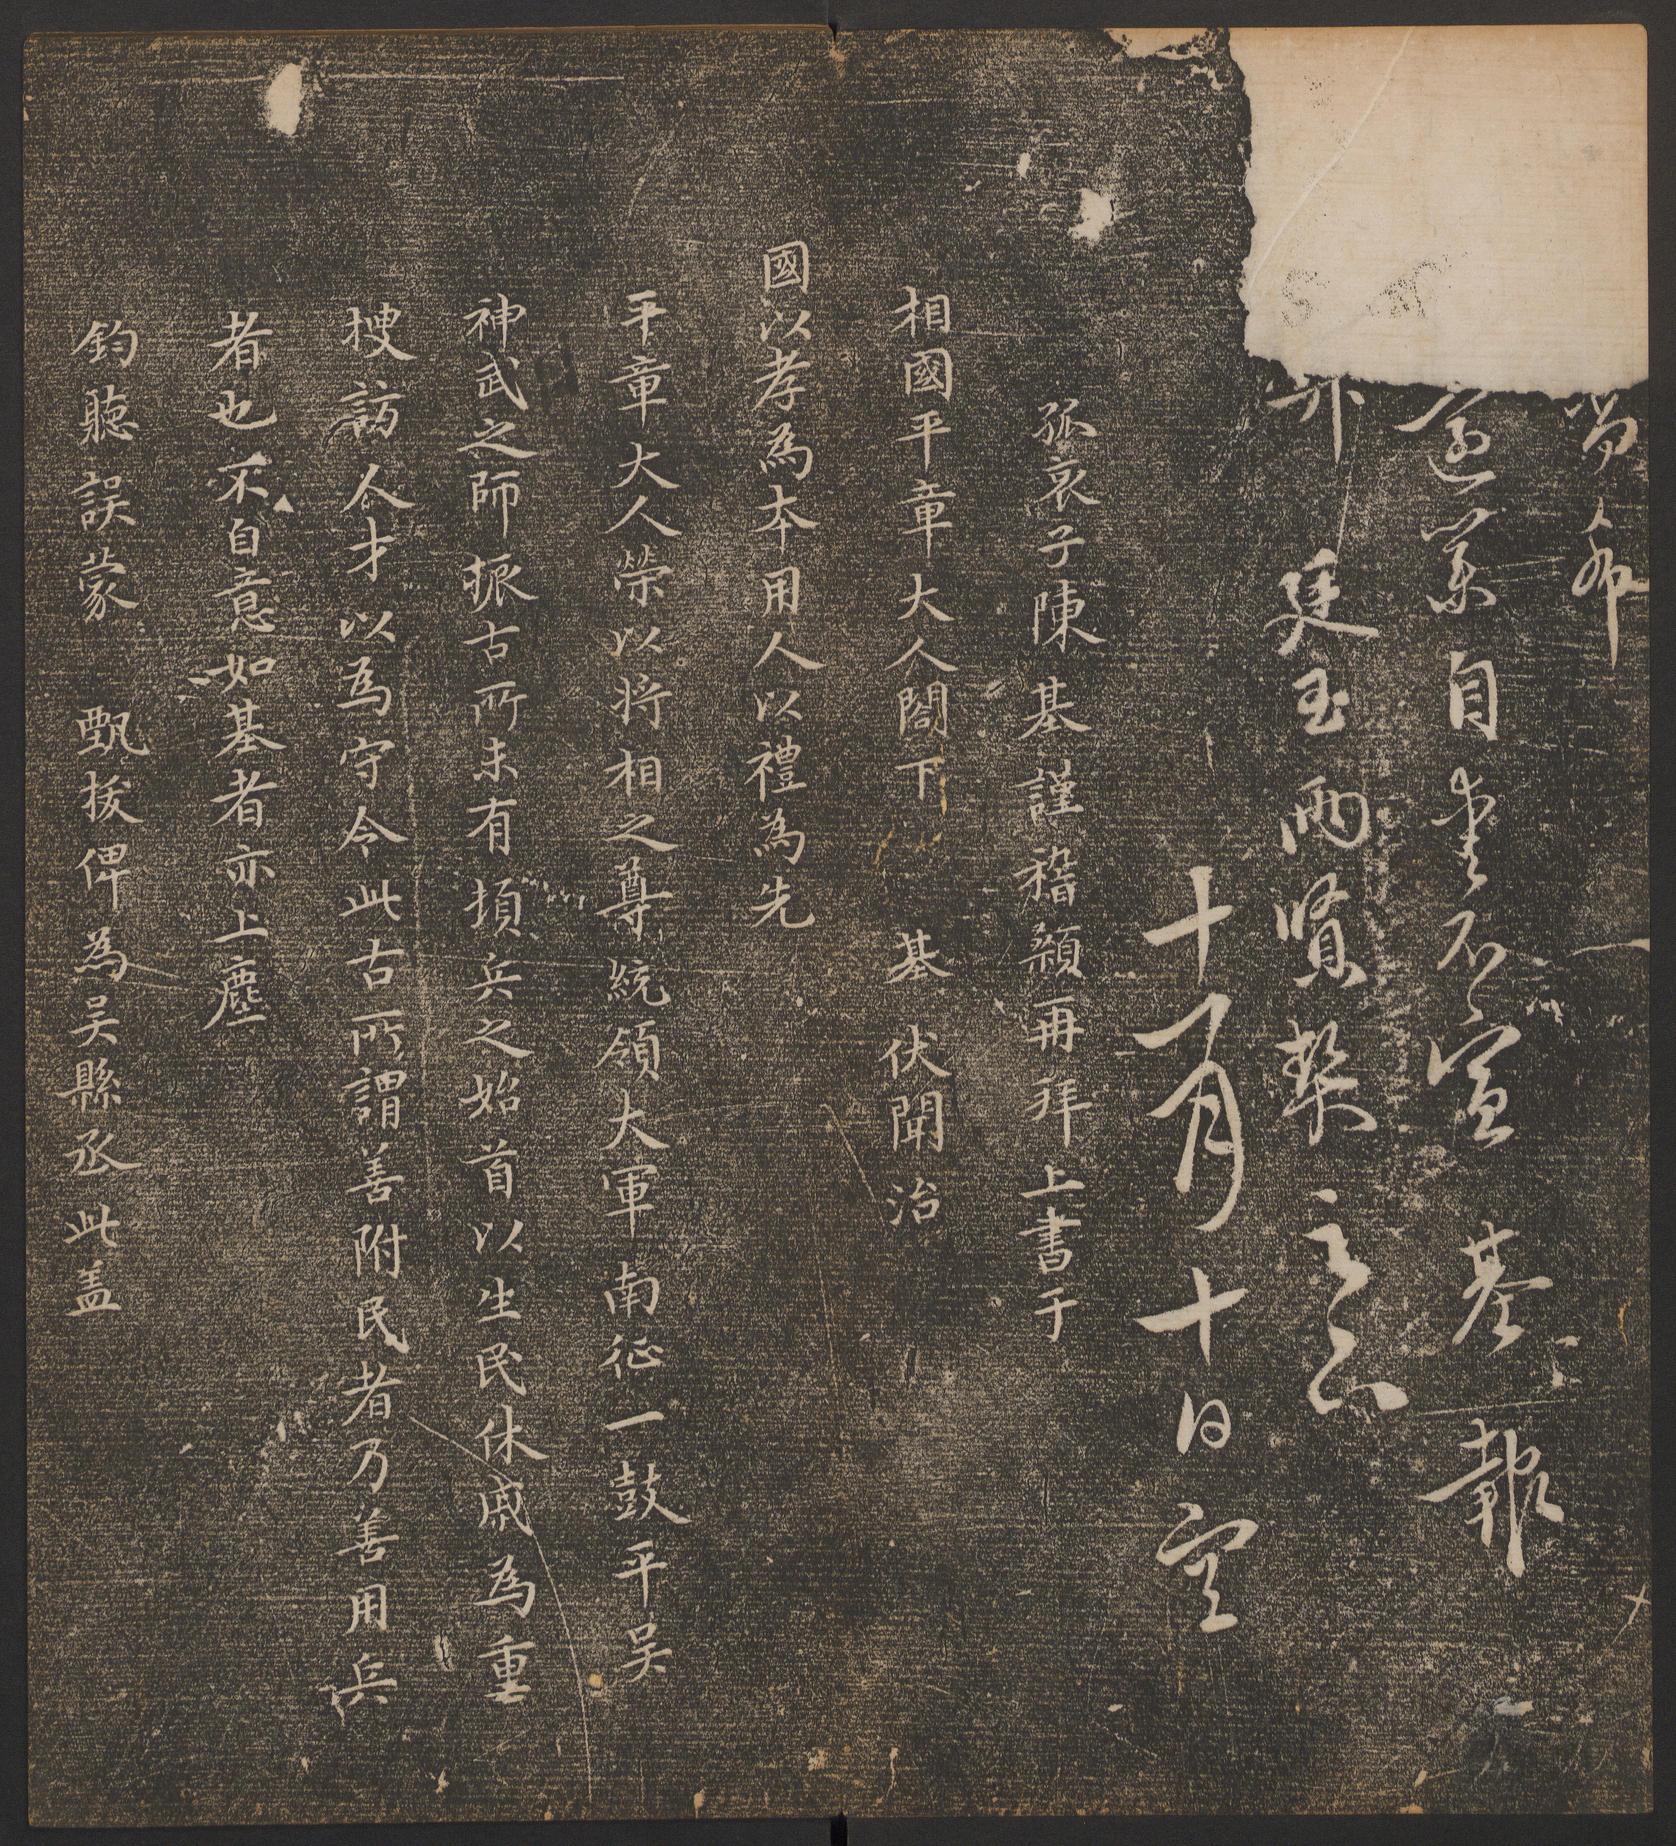 當布
遠業自重不宣基報
升廷玉兩賢契言
十一月十日空
孤哀子陳基謹稽顙再拜上書于
相國平章大人閤下基伏聞治
國以孝為本用人以禮為先
平章大人榮以將相之尊統領大軍南征一鼓平吳
神武之師振古所未有頃兵之始首以生民休戚為重
搜訪人才以為守令此古所謂善附民者乃善用兵
者也不自意如基者亦上塵
鈞聽誤蒙甄拔俾為吳縣丞此盖